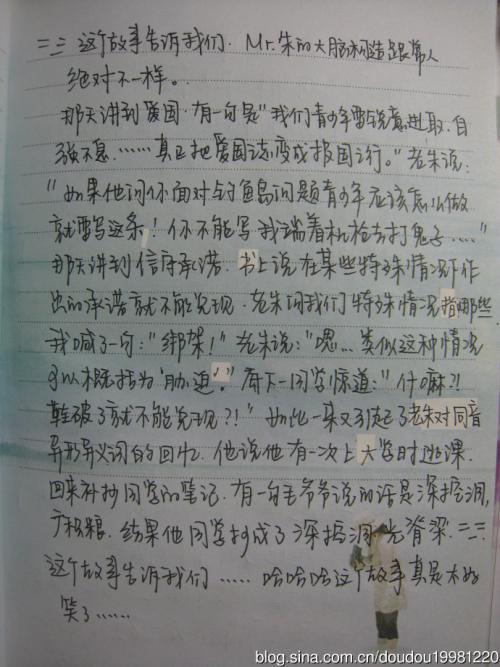 =_= 这个故事告诉我们.Mr.朱的大脑构造跟常人
绝对不一样。
那天讲到爱国.有一句是"我们青少年要锐意进取.自
强不息.……真正把爱国之志变成报国之行。"老朱说:
"如果他问你面对钓鱼岛问题青少年应该怎么做
就要写这条!你不能写我端着机枪去打鬼子……"
那天讲到信守承诺.书上说在某些特殊情况下作
出的承诺就不能兑现.老朱问我们特殊情况指哪些.
我喊了一句:"绑架!"老朱说:"嗯…类似这种情况
可以概括为'胁迫'."底下一同学惊道:"什嘛?!
鞋破了就不能兑现?!"如此一来又引起了老朱对同音
异形异义词的回忆.他说他有一次上大学时逃课.
回来补抄同学的笔记.有一句毛爷爷说的话是深挖洞,
广积粮.结果他同学抄成了深挖洞光脊梁.=_=
这个故事告诉我们……哈哈哈这个故事真是太好
笑了……
blog.sina.com.cn/doudou19981220